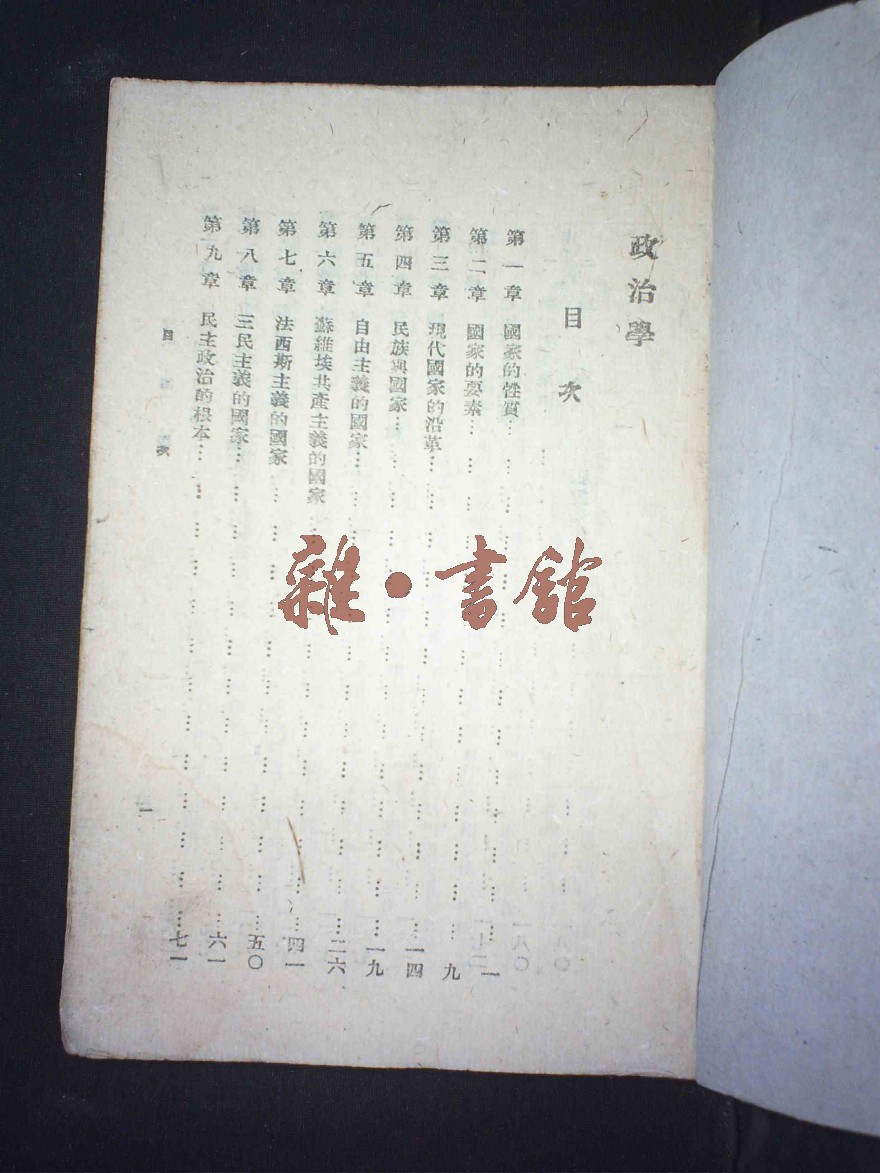 政治學
目次
第一章 國家的性質…………一
第二章 國家的要素…………九
第三章 現代國家的沿革…………一四
第四章 民族與國家…………一九
第五章 自由主義的國家…………二六
第六章 蘇維埃共產主義的國家…………四一
第七章 法西斯主義的國家…………五〇
第八章 三民主義的國家…………六一
第九章 民主政治的根本…………七一
目次
一
雜·書館